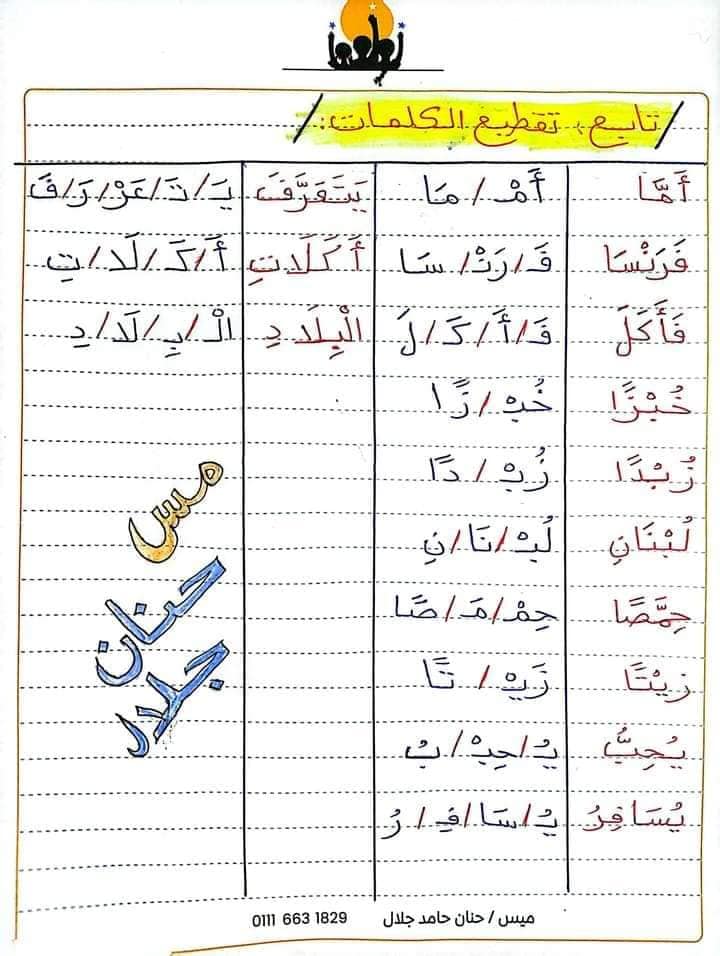 تابع، تقطيع الكلمات:
أَمَّا أَمْ/مَا يَتَعَرَّفَ يَـ/تَـ/عَرْ/رَ/فَ
فَرَنْسَا فَـ/رَنْـ/سَا أَكَلَاتِ أَ/كَـ/لَا/تِ
فَأَكَلَ فَـ/أَ/كَـ/لَ الْبِلَادِ الْـ/بِـ/لَا/دِ
خُبْزًا خُبْـ/زًا
زُبْدًا زُبْـ/دًا
لُبْنَانِ لُبْـ/نَا/نِ
حِمَّصًا حِمْـ/مَـ/صًا
زَيْتًا زَيْـ/تًا
يُحِبُّ يُـ/حِبْـ/بُ
يُسَافِرُ يُـ/سَا/فِـ/رُ
مس
حنان
جلال
ميس / حنان حامد جلال 0111 663 1829